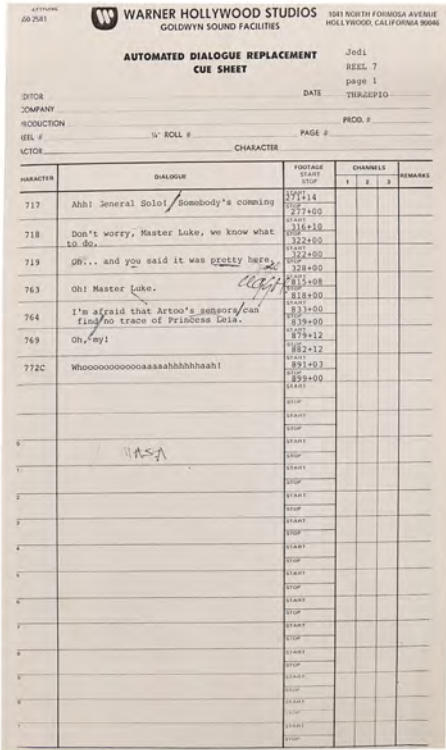 WARNER HOLLYWOOD STUDIOS
GOLDWYN SOUND FACILITIES
1041 NORTH FORMOSA AVENUE
HOLLYWOOD, CALIFORNIA 90046
AUTOMATED DIALOGUE REPLACEMENT
CUE SHEET
Jedi
REEL 7
page 1
DATE THRZEPIO
DITOR
COMPANY
PRODUCTION PROD. #
EEL # ¼" ROLL # PAGE #
ACTOR CHARACTER
HARACTER DIALOGUE FOOTAGE START STOP CHANNELS 1 2 3 REMARKS
717 Ahh! General Solo! Somebody's comming START 271+14
STOP 277+00
718 Don't worry, Master Luke, we know what to do. START 316+10
STOP 322+00
719 Oh... and you said it was pretty here. START 322+00
STOP 328+00
763 Oh! Master Luke. START 815+08
STOP 818+00
764 I'm afraid that Artoo's sensors can START 833+00
find no trace of Princess Leia. STOP 839+00
769 Oh, my! START 879+12
STOP 882+12
772C Whooooooooooooaaaaahhhhhhaah! START 891+03
STOP 899+00
START
STOP
START
STOP
START
STOP
START
STOP
START
STOP
START
STOP
START
STOP
START
STOP
START
STOP
START
STOP
START
STOP
START
STOP